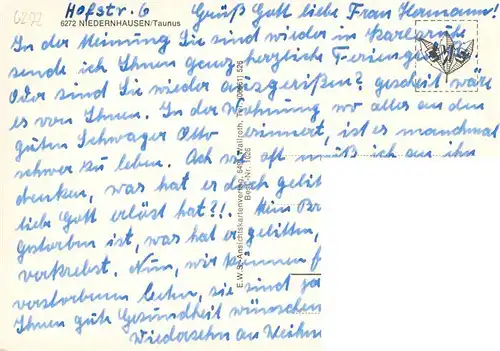 Hofstr. 6
6272 NIEDERNHAUSEN/Taunus
Grüß Gott liebe Frau Hermann!
In der Meinung Sie sind wieder in Karlsruhe
sende ich Ihnen ganz herzliche Feriengrü
Oder sind Sie wieder ausgerißen? gescheit wäre
es von Ihnen. In der Wohnung wo alles an den
guten Schwager Otto erinnert, ist es manchmal
schwer zu leben. Ach wie oft muß ich an ihn
denken, was hat er doch gelit
liebe Gott erlöst hat?!. Mein Br
gestorben ist, was hat er gelitten,
verkrebst. Nun, wir können f
verstorbenen beten, sie sind ja
Ihnen gute Gesundheit wünschen
Wiedersehn an Weihn
E.W.S.-Ansichtskartenverlag, 6493 Wallroth, Tel. (06661) 426
Best.-Nr. 1026